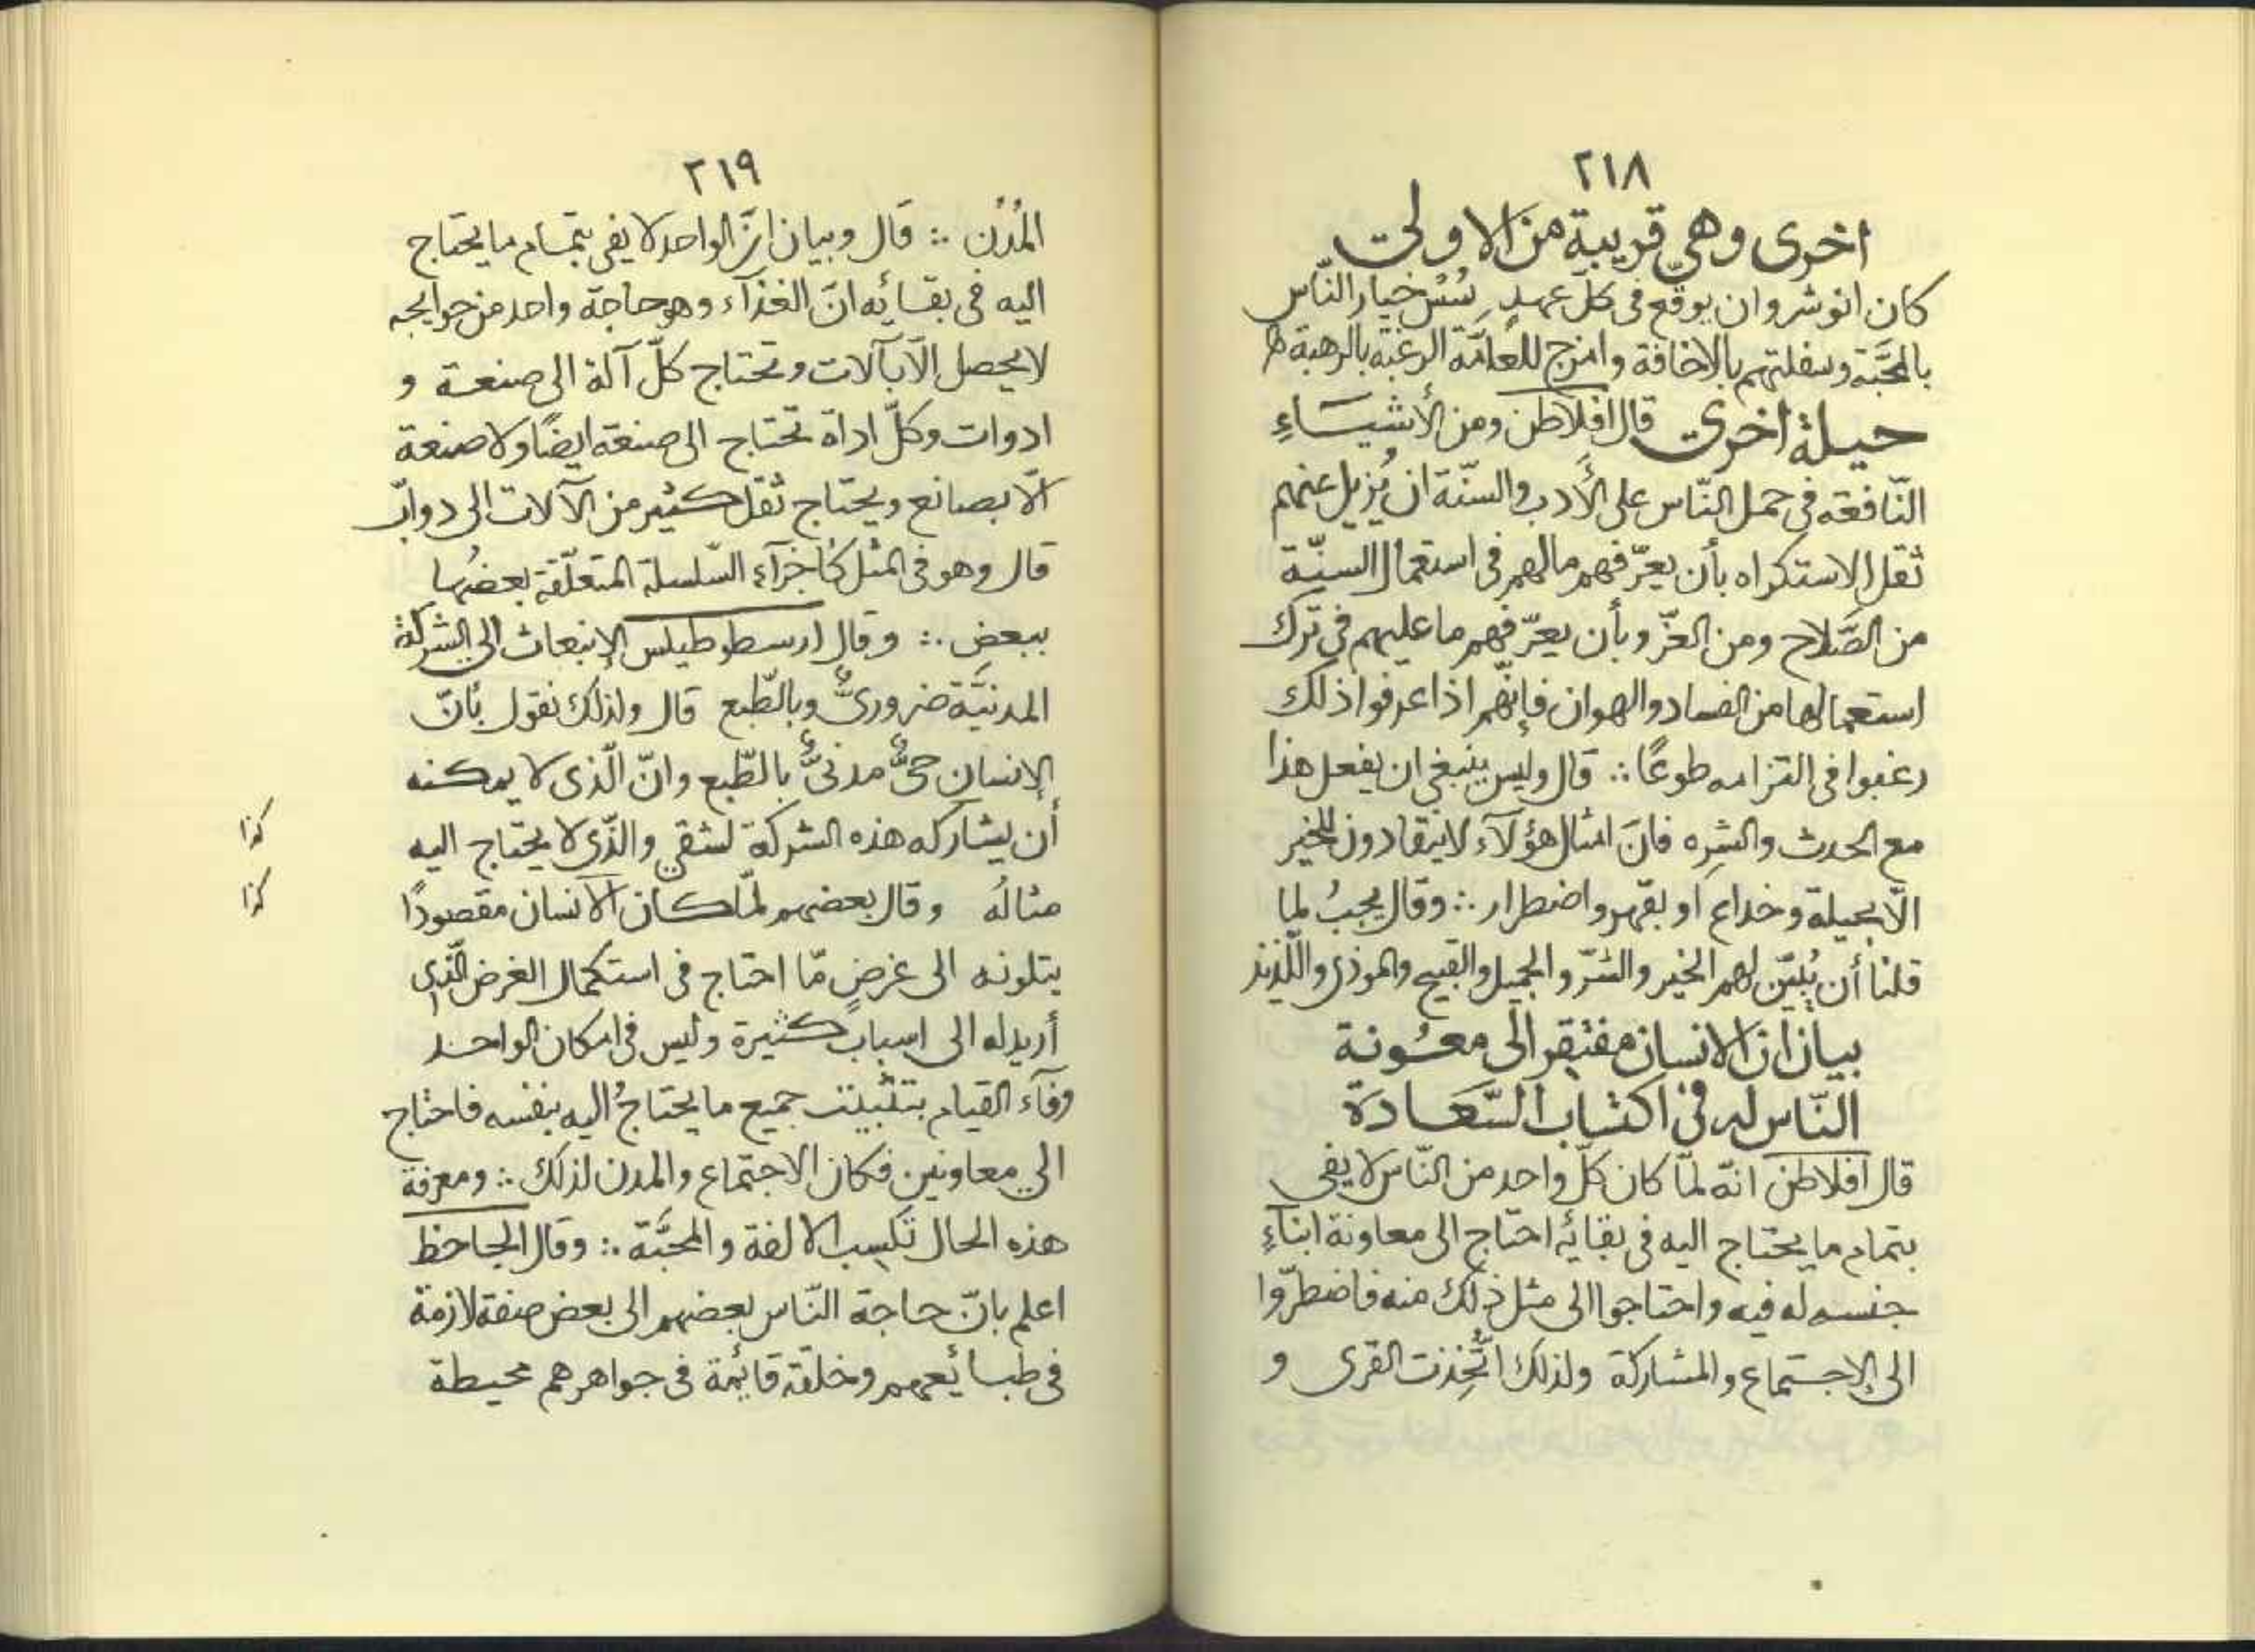 ٢١٨
اخرى وهي قريبة من الاولى
كان انوشروان يوقّع في كلّ عهدٍ سُسْ خيار النّاس
بالمحَبّة وسفلتهم بالاخافة وامزج للعامّة الرغبة بالرهبة
حيلة اخرى قال افلاطن ومن الأشيَاءِ
النّافعة في حمل النّاس على الأَدب والسنّة ان يُزيل عنهم
ثقل الاستكراه بأن يعرّفهم مالهم في استعمال السنّة
من الصَّلاح ومن العزّ وبأن يعرّفهم ما عليهم في ترك
استعمالها من الفساد والهوان فإنّهم اذا عرفوا ذلك
رغبوا في التزامه طوعًا ∴ قال وليس ينبغي ان يفعل هذا
مع الحدث والشرِه فانّ امثال هؤلآء لاينقادون للخير
الّا بحيلة وخداع او بقهر واضطرار ∴ وقال يجبُ لما
قلنا أن يُبيّن لهم الخير والشرّ والجميل والقبيح والموذي واللّذيذ
بيان ان الانسان مفتقر الى معُونة
النّاس له في اكتساب السّعَادة
قال افلاطن انّه لمّا كان كلّ واحد من النّاس لا يفي
بتمام ما يحتاج اليه في بقائه احتاج الى معاونة ابنآءِ
جنسه له فيه واحتاجوا الى مثل ذلك منه فاضطرّوا
الى الإجتماع والمشاركة ولذلك اتُّخِذت القرى و
٢١٩
المُدُن ∴ قال وبيان انّ الواحد لا يفي بتمام ما يحتاج
اليه في بقائه انّ الغذآء وهو حاجة واحد من حوايجه
لا يحصل الّا بآلات وتحتاج كلّ آلة الى صنعة و
ادوات وكلّ اداة تحتاج الى صنعة ايضًا ولا صنعة
الّا بصانع ويحتاج ثقل كثير من الآلات الى دوابّ
قال وهو في المثل كأجزآء السّلسلة المتعلّقة بعضُها
ببعض ∴ وقال ارسطوطيلس الإنبعاث الى الشركة
المدنيَّة ضروريٌّ وبالطّبع قال ولذلك نقول بأنّ
الإنسان حيٌّ مدنيٌّ بالطّبع وانّ الّذى لا يمكنه
أن يشاركه هذه الشركة لشقي والّذى لا يحتاج اليه كذا
مثالُه وقال بعضهم لمّا كان الانسان مقصودًا كذا
بتلونه الى غرضٍ مّا احتاج في استكمال الغرض الّذى
أريد له الى اسبابٍ كثيرة وليس في امكان الواحد
وفآء القيام بتثبيت جميع ما يحتاجُ اليه بنفسه فاحتاج
الى معاونين فكان الاجتماع والمدن لذلك ∴ ومعرفة
هذه الحال تكسِب الالفة والمحبَّة ∴ وقال الجاحظ
اعلم بانّ حاجة النّاس بعضهم الى بعض صفة لازمة
في طبائعهم وخلقة قائمة في جواهرهم محيطة